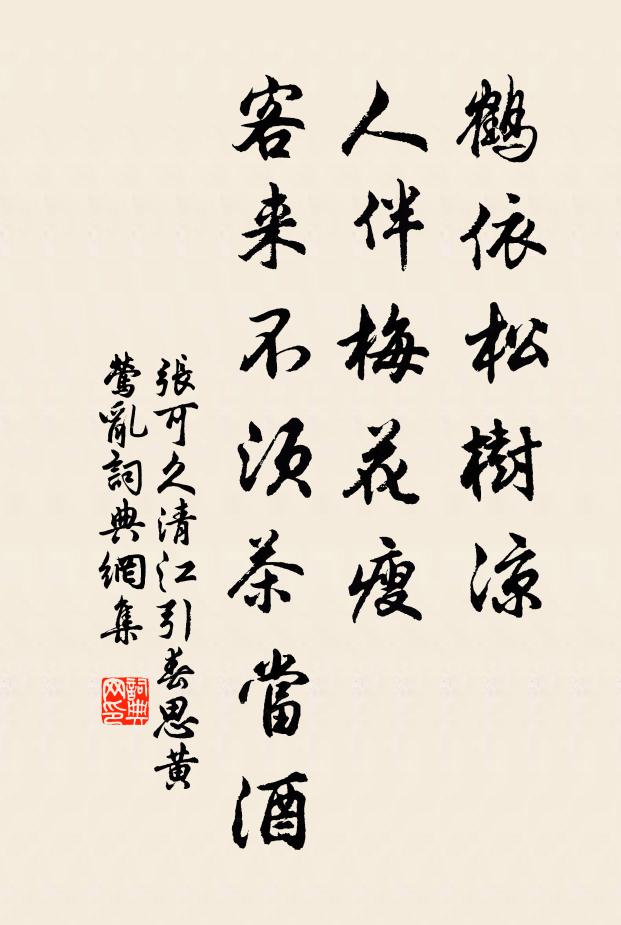 鶴依松樹涼
人伴梅花瘦
客来不須茶當酒
張可久清江引春思黄
鶯亂詞典網集
詞典
网印